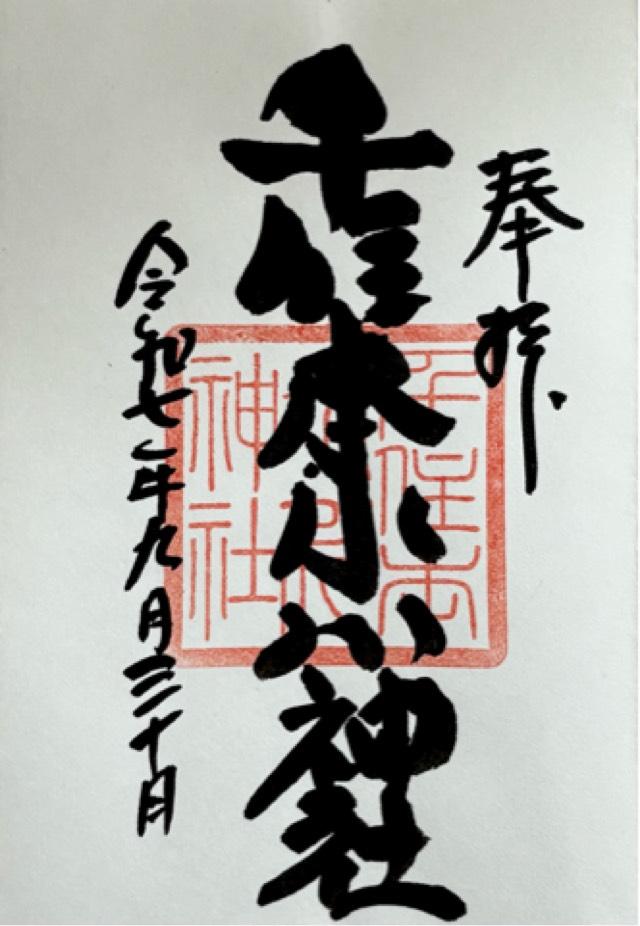 奉拝
千住本氷川神社
令和七年九月三十日
千住本
神社